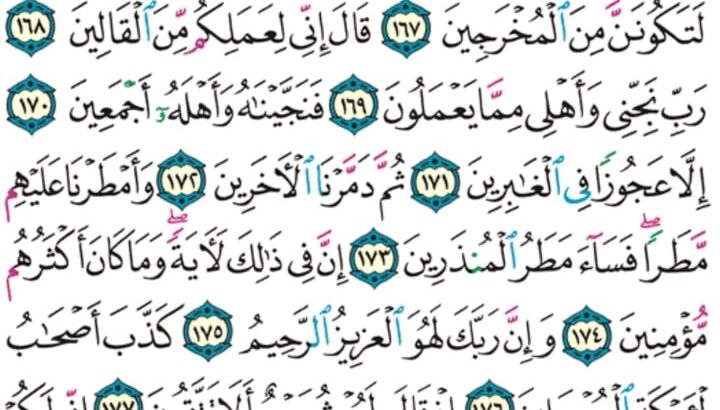 لَتَكُونَنَّ مِنَ ٱلْمُخْرَجِينَ ١٦٧ قَالَ إِنِّى لِعَمَلِكُم مِّنَ ٱلْقَالِينَ ١٦٨
رَبِّ نَجِّنِى وَأَهْلِى مِمَّا يَعْمَلُونَ ١٦٩ فَنَجَّيْنَٰهُ وَأَهْلَهُۥٓ أَجْمَعِينَ ١٧٠
إِلَّا عَجُوزًا فِى ٱلْغَٰبِرِينَ ١٧١ ثُمَّ دَمَّرْنَا ٱلْأَخَرِينَ ١٧٢ وَأَمْطَرْنَا عَلَيْهِم
مَّطَرًا ۖ فَسَآءَ مَطَرُ ٱلْمُنذَرِينَ ١٧٣ إِنَّ فِى ذَٰلِكَ لَأَيَةً ۖ وَمَا كَانَ أَكْثَرُهُم
مُّؤْمِنِينَ ١٧٤ وَإِنَّ رَبَّكَ لَهُوَ ٱلْعَزِيزُ ٱلرَّحِيمُ ١٧٥ كَذَّبَ أَصْحَٰبُ
١٧٦ ١٧٧